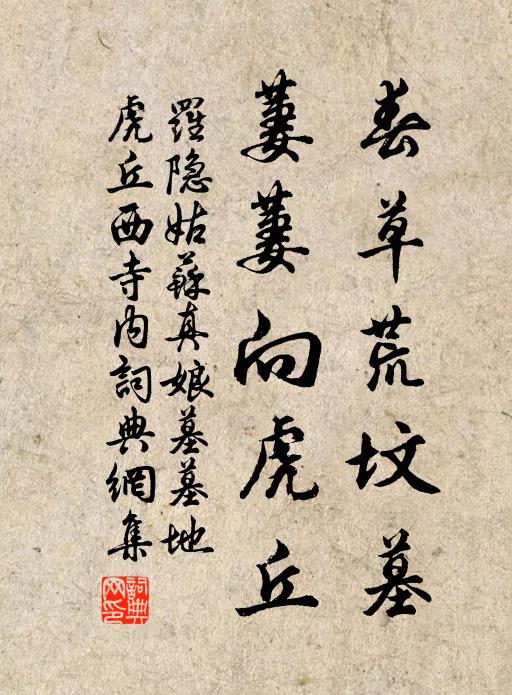 春草荒坟墓
萋萋向虎丘
羅隐姑蘇真娘墓墓地
虎丘西寺内詞典網集
詞典
网印